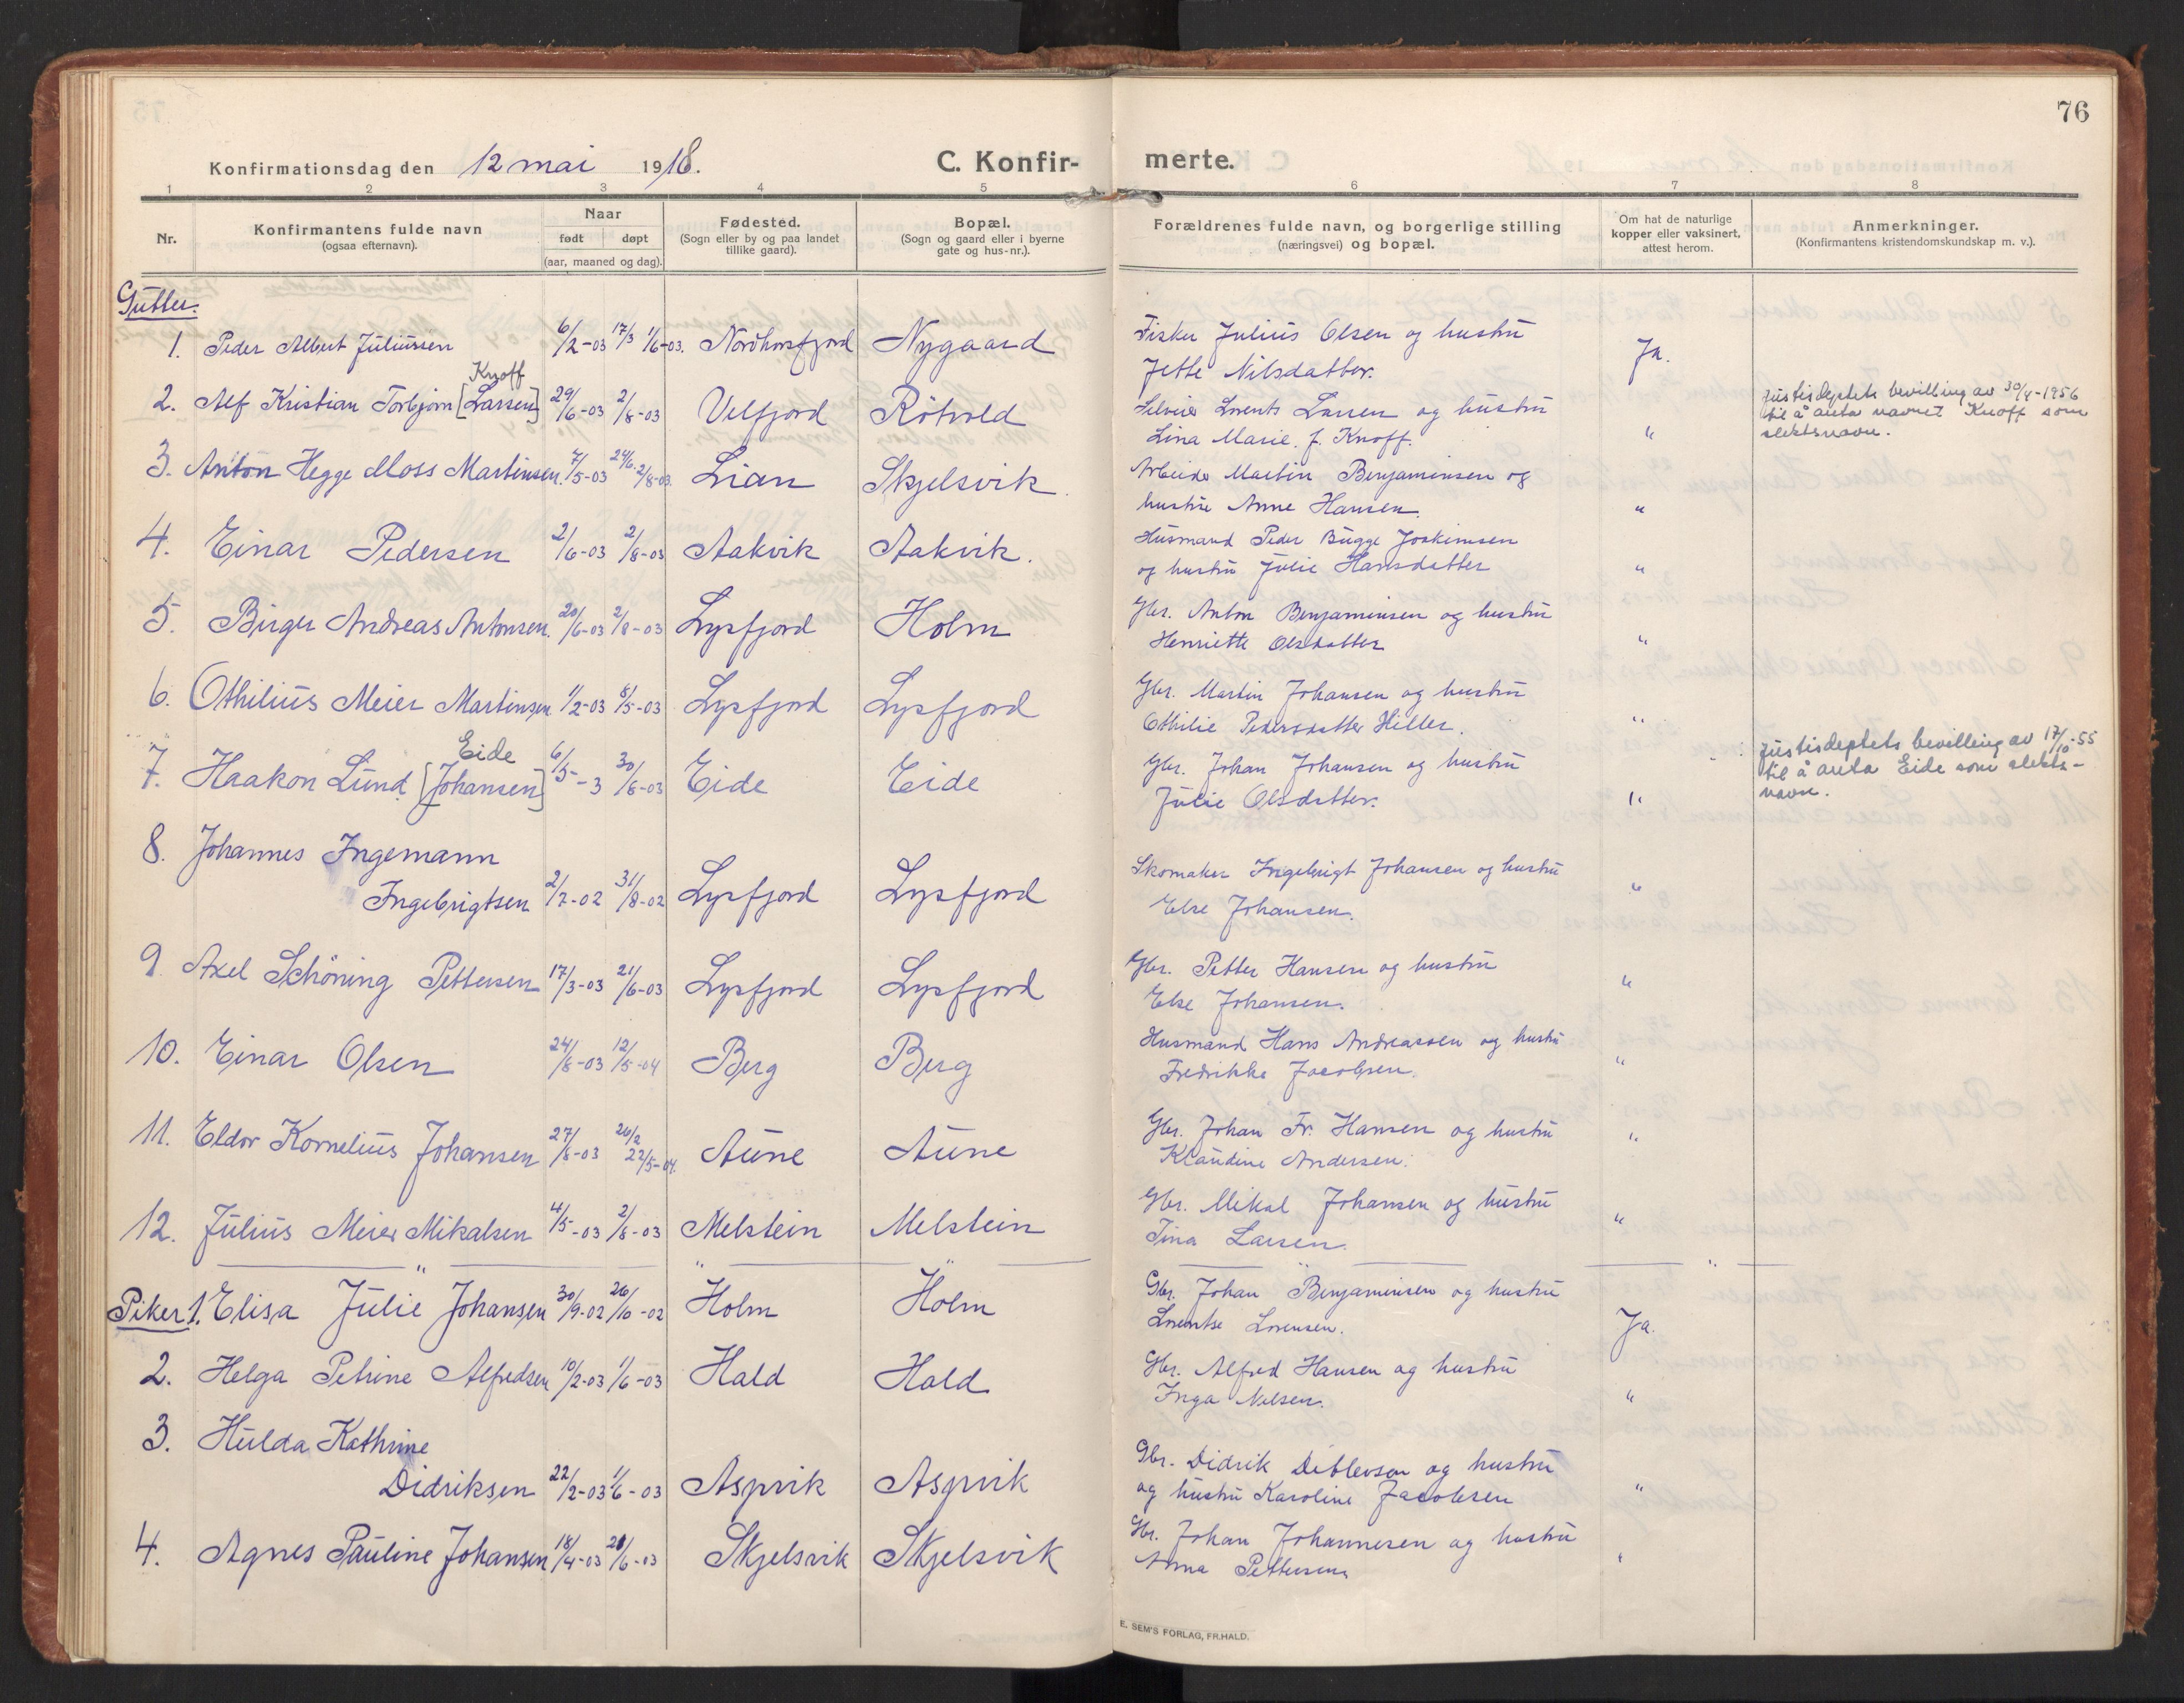 76
Konfirmationsdag den 12 mai 1918.
C. Konfirmerte.
1 2 3 4 5 6 7 8
Nr.
Konfirmantens fulde navn
(ogsaa efternavn).
Naar
født døpt
(aar, maaned og dag).
Fødested.
(Sogn eller by og paa landet
tillike gaard).
Bopæl.
(Sogn og gaard eller i byerne
gate og hus-nr.).
Forældrenes fulde navn, og borgerlige stilling
(næringsvei) og bopæl.
Om hat de naturlige
kopper eller vaksinert,
attest herom.
Anmerkninger.
(Konfirmantens kristendomskundskap m. v.).
Gutter.
1. Peder Albert Juliussen 6/2-03 17/3 1/6-03. Nordhorsfjord Nygaard
Fisker Julius Olsen og hustru
Jette Nilsdatter. Ja.
Knoff
2. Alf Kristian Torbjørn [Larsen] 29/6-03 2/8-03 Velfjord Råtvold
Lorents Larsen og hustru
Lina Marie f. Knoff. "
Justisdeptets bevilling av 30/4-1956
til å anta navnet Knoff som
slektsnavn.
3. Anton Hegge Moss Martinsen 7/5-03 24/6 2/8-03. Lian Skjelsvik.
Arbeider Martin Benjaminsen og
hustru Anne Hansen. "
4. Einar Pedersen 2/6-03 2/8-03 Aakvik Aakvik.
Husmand Peder Bugge Joakimsen
og hustru Julie Hansdatter "
5. Birger Andreas Antonsen. 20/6-03 2/8-03 Lysfjord Holm
Gbr. Anton Benjaminsen og hustru
Henriette Olsdatter "
6. Othilius Meier Martinsen 1/2-03 8/5-03 Lysfjord Lysfjord
Gbr. Martin Johansen og hustru
Othilie Pedersdatter Hiller. "
Eide
7. Haakon Lund [Johansen] 6/5-3 30/8-03 Eide Eide
Gbr. Johan Johansen og hustru
Julie Olsdatter. "
Justisdeptets bevilling av 17/10-55
til å anta Eide som slekts-
navn.
8. Johannes Ingemann
Ingebrigtsen 2/7-02 31/8-02 Lysfjord Lysfjord
Skomaker Ingebrigt Johansen og hustru
Else Johansen. "
9. Axel Schöning Pettersen 17/3-03 21/6-03 Lysfjord Lysfjord
Gbr. Petter Hansen og hustru
Else Johansen. "
10. Einar Olsen 24/8-03 12/5-04 Berg Berg
Husmand Hans Andreassen og hustru
Fredrikke Jacobsen. "
11. Eldor Kornelius Johansen 27/8-03 26/2 22/5-04. Aune Aune
Gbr. Johan Fr. Hansen og hustru
Klaudine Andersen. "
12. Julius Meier Mikalsen 4/5-03 2/8-03 Melstein Melstein
Gbr. Mikal Johansen og hustru
Tina Larsen. "
Piker 1. Elisa Julie Johansen 30/9-02 26/10-02 Holm Holm
Gbr. Johan Benjaminsen og hustru
Lorentse Lorensen. Ja.
2. Helga Petrine Alfredsen 10/2-03 1/6-03 Hald Hald
Gbr. Alfred Hansen og hustru
Inga Nilsen. "
3. Hulda Kathrine
Didriksen 22/2-03 1/6-03 Aspvik Aspvik
Gbr. Didrik Ditlevsen og hustru
og hustru Karoline Jacobsen "
4. Agnes Pauline Johansen 18/4-03 20/6-03 Skjelsvik Skjelsvik
Gbr. Johan Johannesen og hustru
Anna Pettersen "
E. SEM'S FORLAG, FR.HALD.